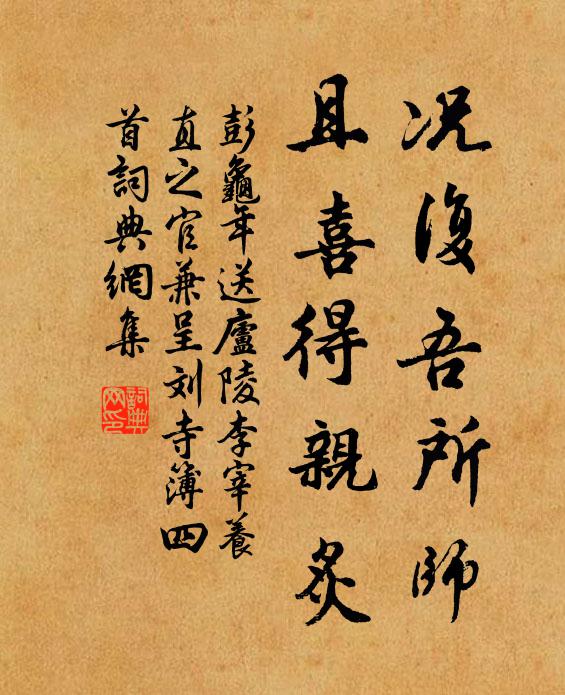 况復吾所師
且喜得親炙
彭龜年送廬陵李宰養
直之官兼呈刘寺簿四
首詞典網集
詞典
网印